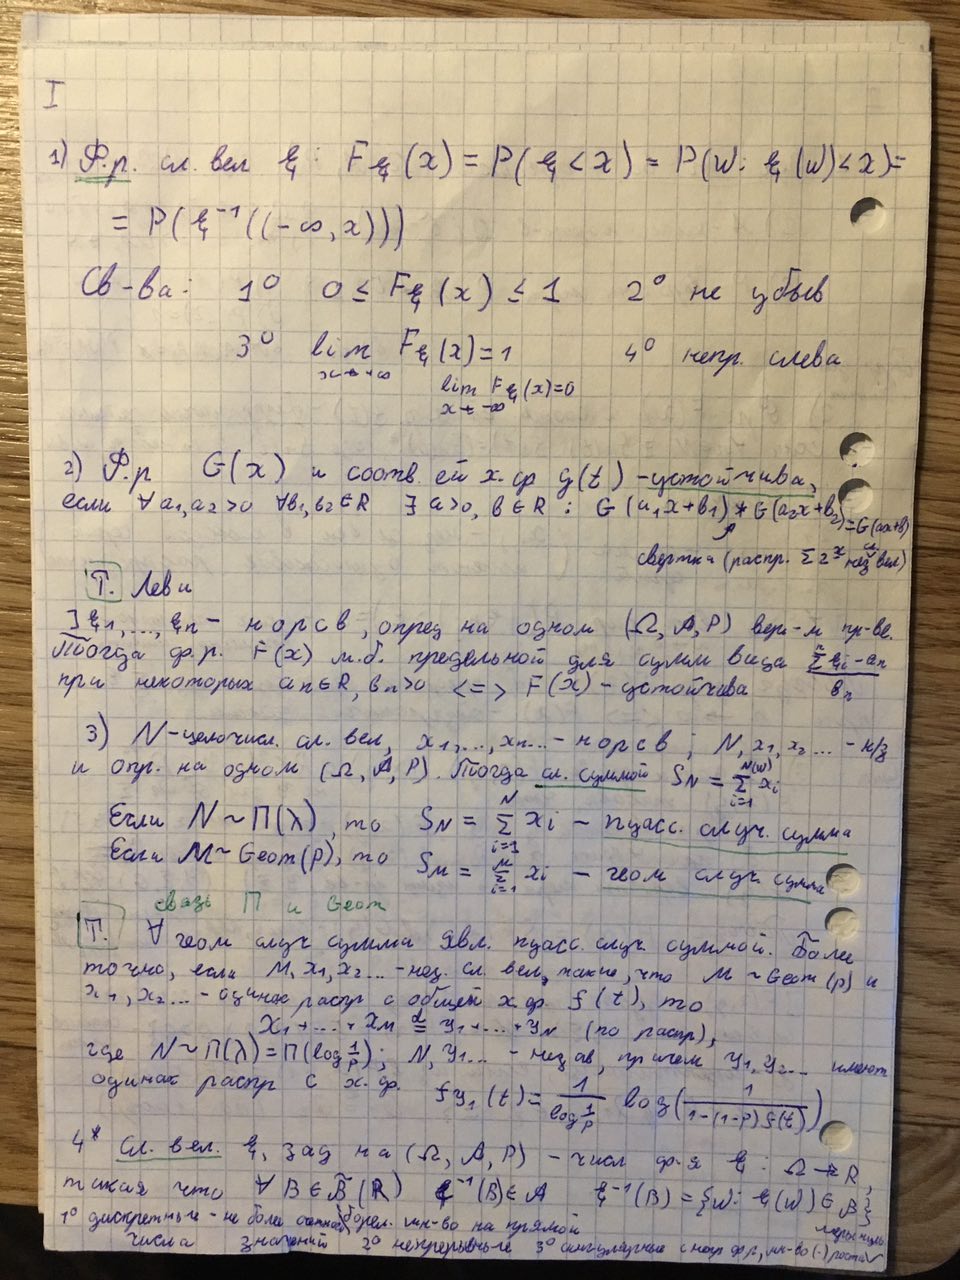 I
1) Ф.р. сл. вел ξ: Fξ(x) = P(ξ < x) = P(ω: ξ(ω) < x) =
= P(ξ⁻¹((-∞, x)))
Св-ва: 1° 0 ≤ Fξ(x) ≤ 1 2° не убыв
3° lim Fξ(x) = 1 4° непр. слева
x→+∞
lim Fξ(x)=0
x→-∞
2) Ф.р G(x) и соотв. ей х.ф g(t) - устойчива,
если ∀ a₁,a₂>0 ∀b₁,b₂∈R ∃ a>0, b∈R : G(a₁x+b₁) * G(a₂x+b₂)=G(ax+b)
свертка (распр. Σ 2ˣ нез сл вел)
Т. Леви
∃ ξ₁,...,ξn - норсв, опред на одном (Ω, A, P) вер-м пр-ве.
Тогда ф.р. F(x) м.б. предельной для сумм вида (Σⁿ ξi - an)/bn
при некоторых an∈R, bn>0 <=> F(x) - устойчива
3) N-целочисл. сл. вел, x₁,...,xn... - норсв ; N, x₁, x₂ ... - н/з
и опр. на одном (Ω, A, P). Тогда сл. суммой SN = Σ xi
N(ω)
i=1
Если N ~ П(λ), то SN = Σ xi - пуасс. случ. сумма
N
i=1
Если M ~ Geom(p), то SM = Σ xi - геом случ сумма
M
i=1
связь П и Geom
Т. ∀ геом случ сумма явл. пуасс. случ. суммой. Более
точно, если M, x₁, x₂ ... - нез. сл. вел, такие, что M ~ Geom(p) и
x₁, x₂ ... - одинак распр с общей х.ф. f(t), то
X₁ + ... + XM d= y₁ + ... + yN (по распр),
где N ~ П(λ) = П(log 1/p) ; N, y₁... - незав, причем y₁, y₂ ... имеют
одинак распр с х.ф. fy₁(t) = 1/(log 1/p) log(1/(1-(1-p)f(t)))
4* сл. вел. ξ, зад на (Ω, A, P) - числ ф-я ξ : Ω → R,
такая что ∀ B ∈ B(R) ξ⁻¹(B) ∈ A ξ⁻¹(B) = {ω: ξ(ω) ∈ B}
борел. мн-во на прямой
1° дискретные - не более счетн
числа значений 2° непрерывные 3° сингулярные с непр ф.р, мн-во (·) роста